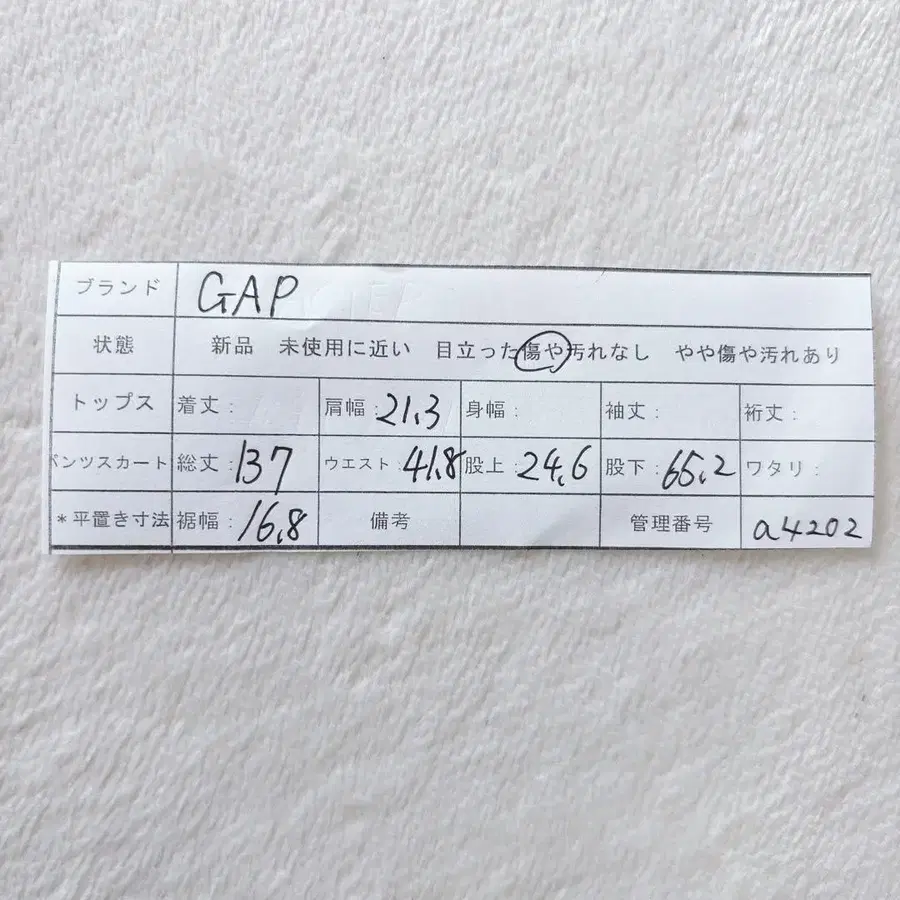 ブランド GAP
状態 新品 未使用に近い 目立った傷や汚れなし やや傷や汚れあり
トップス 着丈: 肩幅:21.3 身幅: 袖丈: 裄丈:
パンツスカート 総丈:137 ウエスト:41.8 股上:24.6 股下:65.2 ワタリ:
*平置き寸法 裾幅:16.8 備考 管理番号 a4202